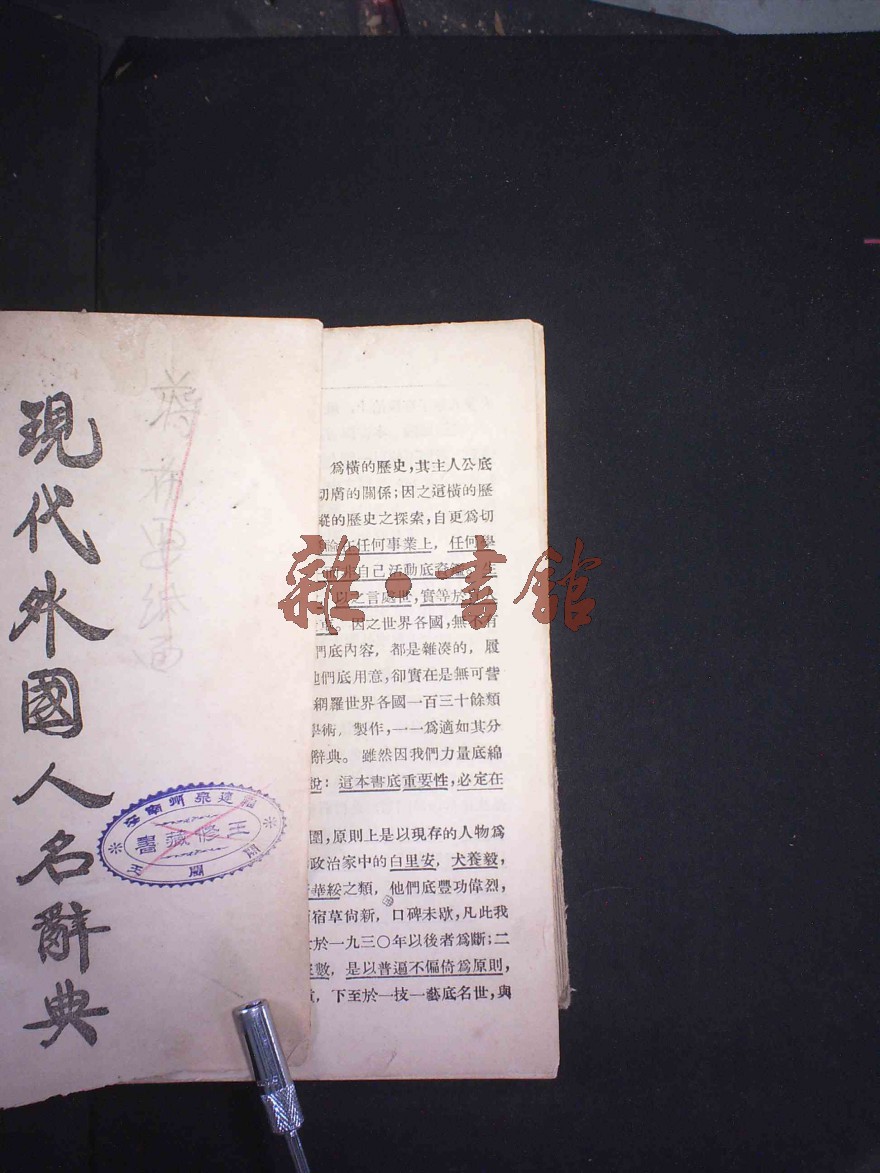 現代外國人名辭典
王修藏書
雜·書館
爲橫的歷史，其主人公底
切膚的關係；因之這橫的歷
縱的歷史之探索，自更爲切
任何事業上，任何學
自己活動底資鑑，生
以之言處世，實等於
。因之世界各國，無不有
們底內容，都是雜湊的，履
他們底用意，卻實在是無可訾
網羅世界各國一百三十餘類
學術，製作，一一爲適如其分
辭典。雖然因我們力量底綿
說：這本書底重要性，必定在
圍，原則上是以現存的人物爲
政治家中的白里安，犬養毅，
華綏之類，他們底豐功偉烈，
宿草尙新，口碑未歇，凡此我
於一九三〇年以後者爲斷；二
數，是以普遍不偏倚爲原則，
，下至於一技一藝底名世，與